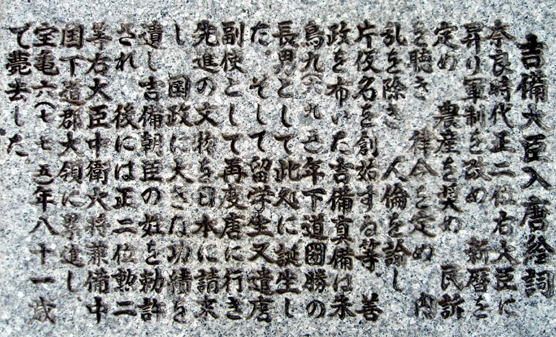 吉備大臣入唐絵詞
奈良時代正二位右大臣に
昇り軍制を改め 新暦を
定め 農産を奨め 民訴
を聴き 律令を定め 内
乱を除き 人倫を諭し
片仮名を創始する等 善
政を布いた吉備真備は朱
鳥九(六九五)年下道圀勝の
長男として此処に誕生し
た そして留学生又遣唐
副使として再度唐に行き
先進の文物を日本に請来
し 国政に大きな功績を
遺し吉備朝臣の姓を勅許
され 後には正二位勲二
等右大臣中衛大将兼備中
国下道郡大領に累進し
宝亀六(七七五)年八十一歳
で薨去した